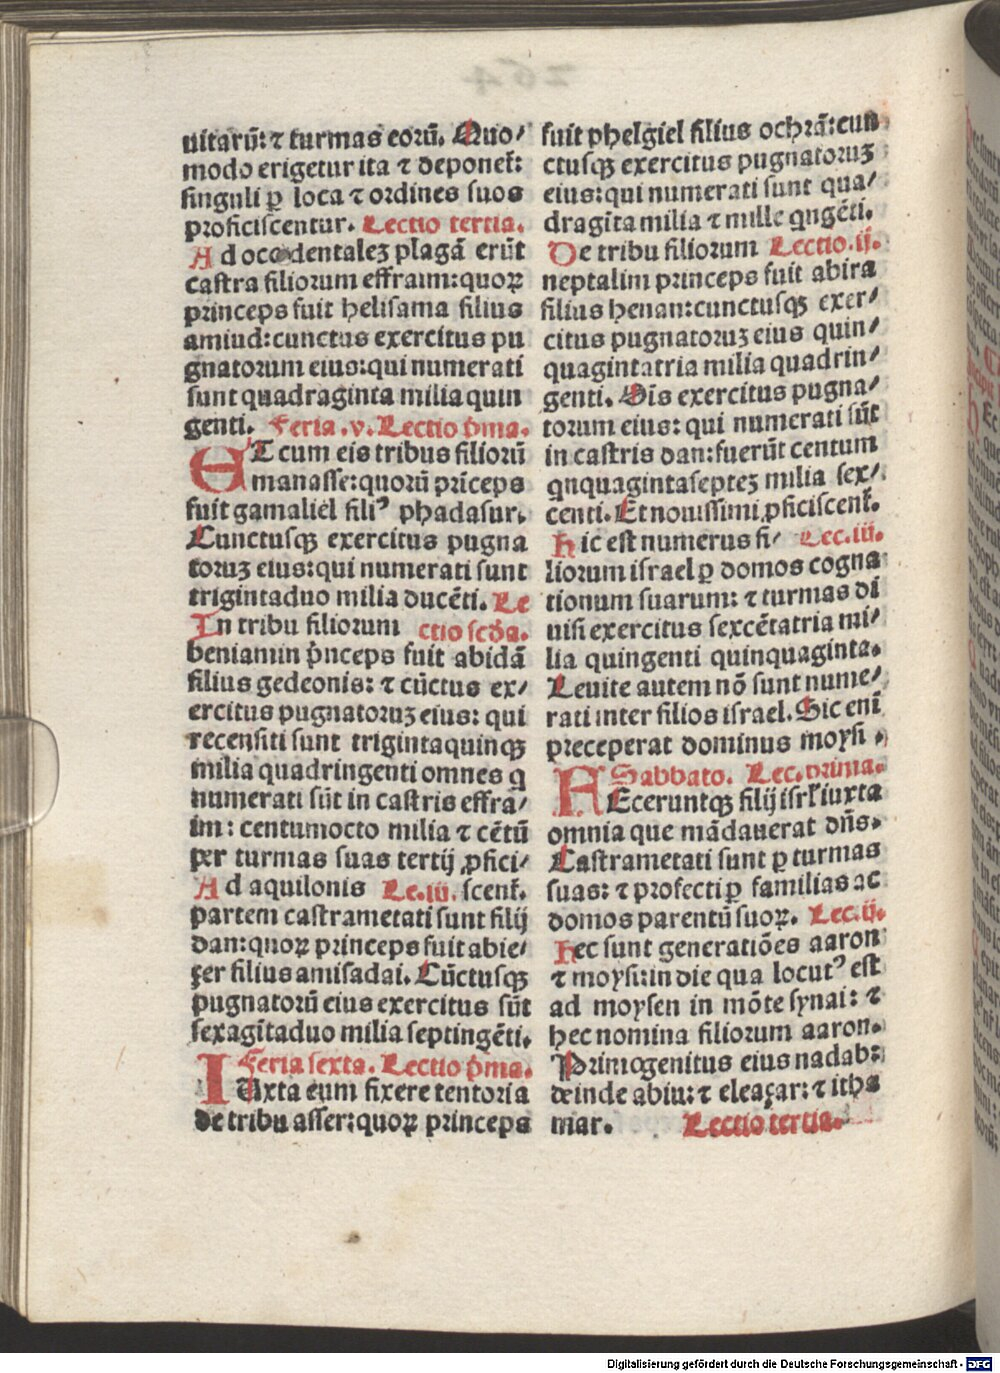 uitarū: ⁊ turmas eorū. Quo/
modo erigetur ita ⁊ deponeſ:
ſinguli ꝑ loca ⁊ ordines ſuos
proficiſcentur. Lectio tertia.
Ad occidentaleʒ plagā erūt
caſtra filiorum effraim: quoꝝ
princeps fuit heliſama filius
amiud: cunctus exercitus pu
gnatorum eius: qui numerati
ſunt quadraginta milia quin
genti. Feria .v. Lectio p̄ma.
ET cum eis tribus filiorū
manaſſe: quorū prīceps
fuit gamaliel filiꝰ phadaſur.
Cunctuſqꝫ exercitus pugna
toruʒ eius: qui numerati ſunt
trigintaduo milia ducēti. Le
In tribu filiorum ctio ſcd̄a.
beniamin p̄nceps fuit abidā
filius gedeonis: ⁊ cūctus ex/
ercitus pugnatoruʒ eius: qui
recenſiti ſunt trigintaquinqꝫ
milia quadringenti omnes q
numerati ſūt in caſtris effra/
im: centumocto milia ⁊ cētū
per turmas ſuas tertij ꝓfici/
Ad aquilonis Le.iii. ſcent.
partem caſtrametati ſunt filij
dan: quoꝝ princeps fuit abie/
zer filius amiſadai. Cūctuſqꝫ
pugnatorū eius exercitus ſūt
ſexagītaduo milia ſeptingēti.
Feria ſexta. Lectio p̄ma.
IUxta eum fixere tentoria
de tribu aſſer: quoꝝ princeps
fuit phelgiel filius ochrā: cun
ctuſqꝫ exercitus pugnatoruʒ
eius: qui numerati ſunt qua/
dragīta milia ⁊ mille qngēti.
De tribu filiorum Lectio.ij.
neptalim princeps fuit abira
filius henan: cunctuſqꝫ exer/
citus pugnatoruʒ eius quin/
quagintatria milia quadrin/
genti. Oīs exercitus pugna/
torum eius: qui numerati ſūt
in caſtris dan: fuerūt centum
qnquagintaſepteʒ milia ſex/
centi. Et nouiſſimi ꝓficiſcent.
Hic eſt numerus fi/ Lec.iii.
liorum iſrael ꝑ domos cogna
tionum ſuarum: ⁊ turmas di
uiſi exercitus ſexcētatria mi/
lia quingenti quinquaginta.
Leuite autem nō ſunt nume/
rati inter filios iſrael. Sic enī
preceperat dominus moyſi.
Sabbato. Lec. prima.
FEceruntqꝫ filij iſrl iuxta
omnia que mādauerat dn̄s.
Caſtrametati ſunt ꝑ turmas
ſuas: ⁊ profecti ꝑ familias ac
domos parentū ſuoꝝ. Lec.ij.
Hec ſunt generatiōes aaron
⁊ moyſi: in die qua locutꝰ eſt
ad moyſen in mōte ſynai: ⁊
hec nomina filiorum aaron.
Primogenitus eius nadab:
deinde abiu: ⁊ eleazar: ⁊ itha
mar. Lectio tertia.
Digitalisierung gefördert durch die Deutsche Forschungsgemeinschaft - DFG